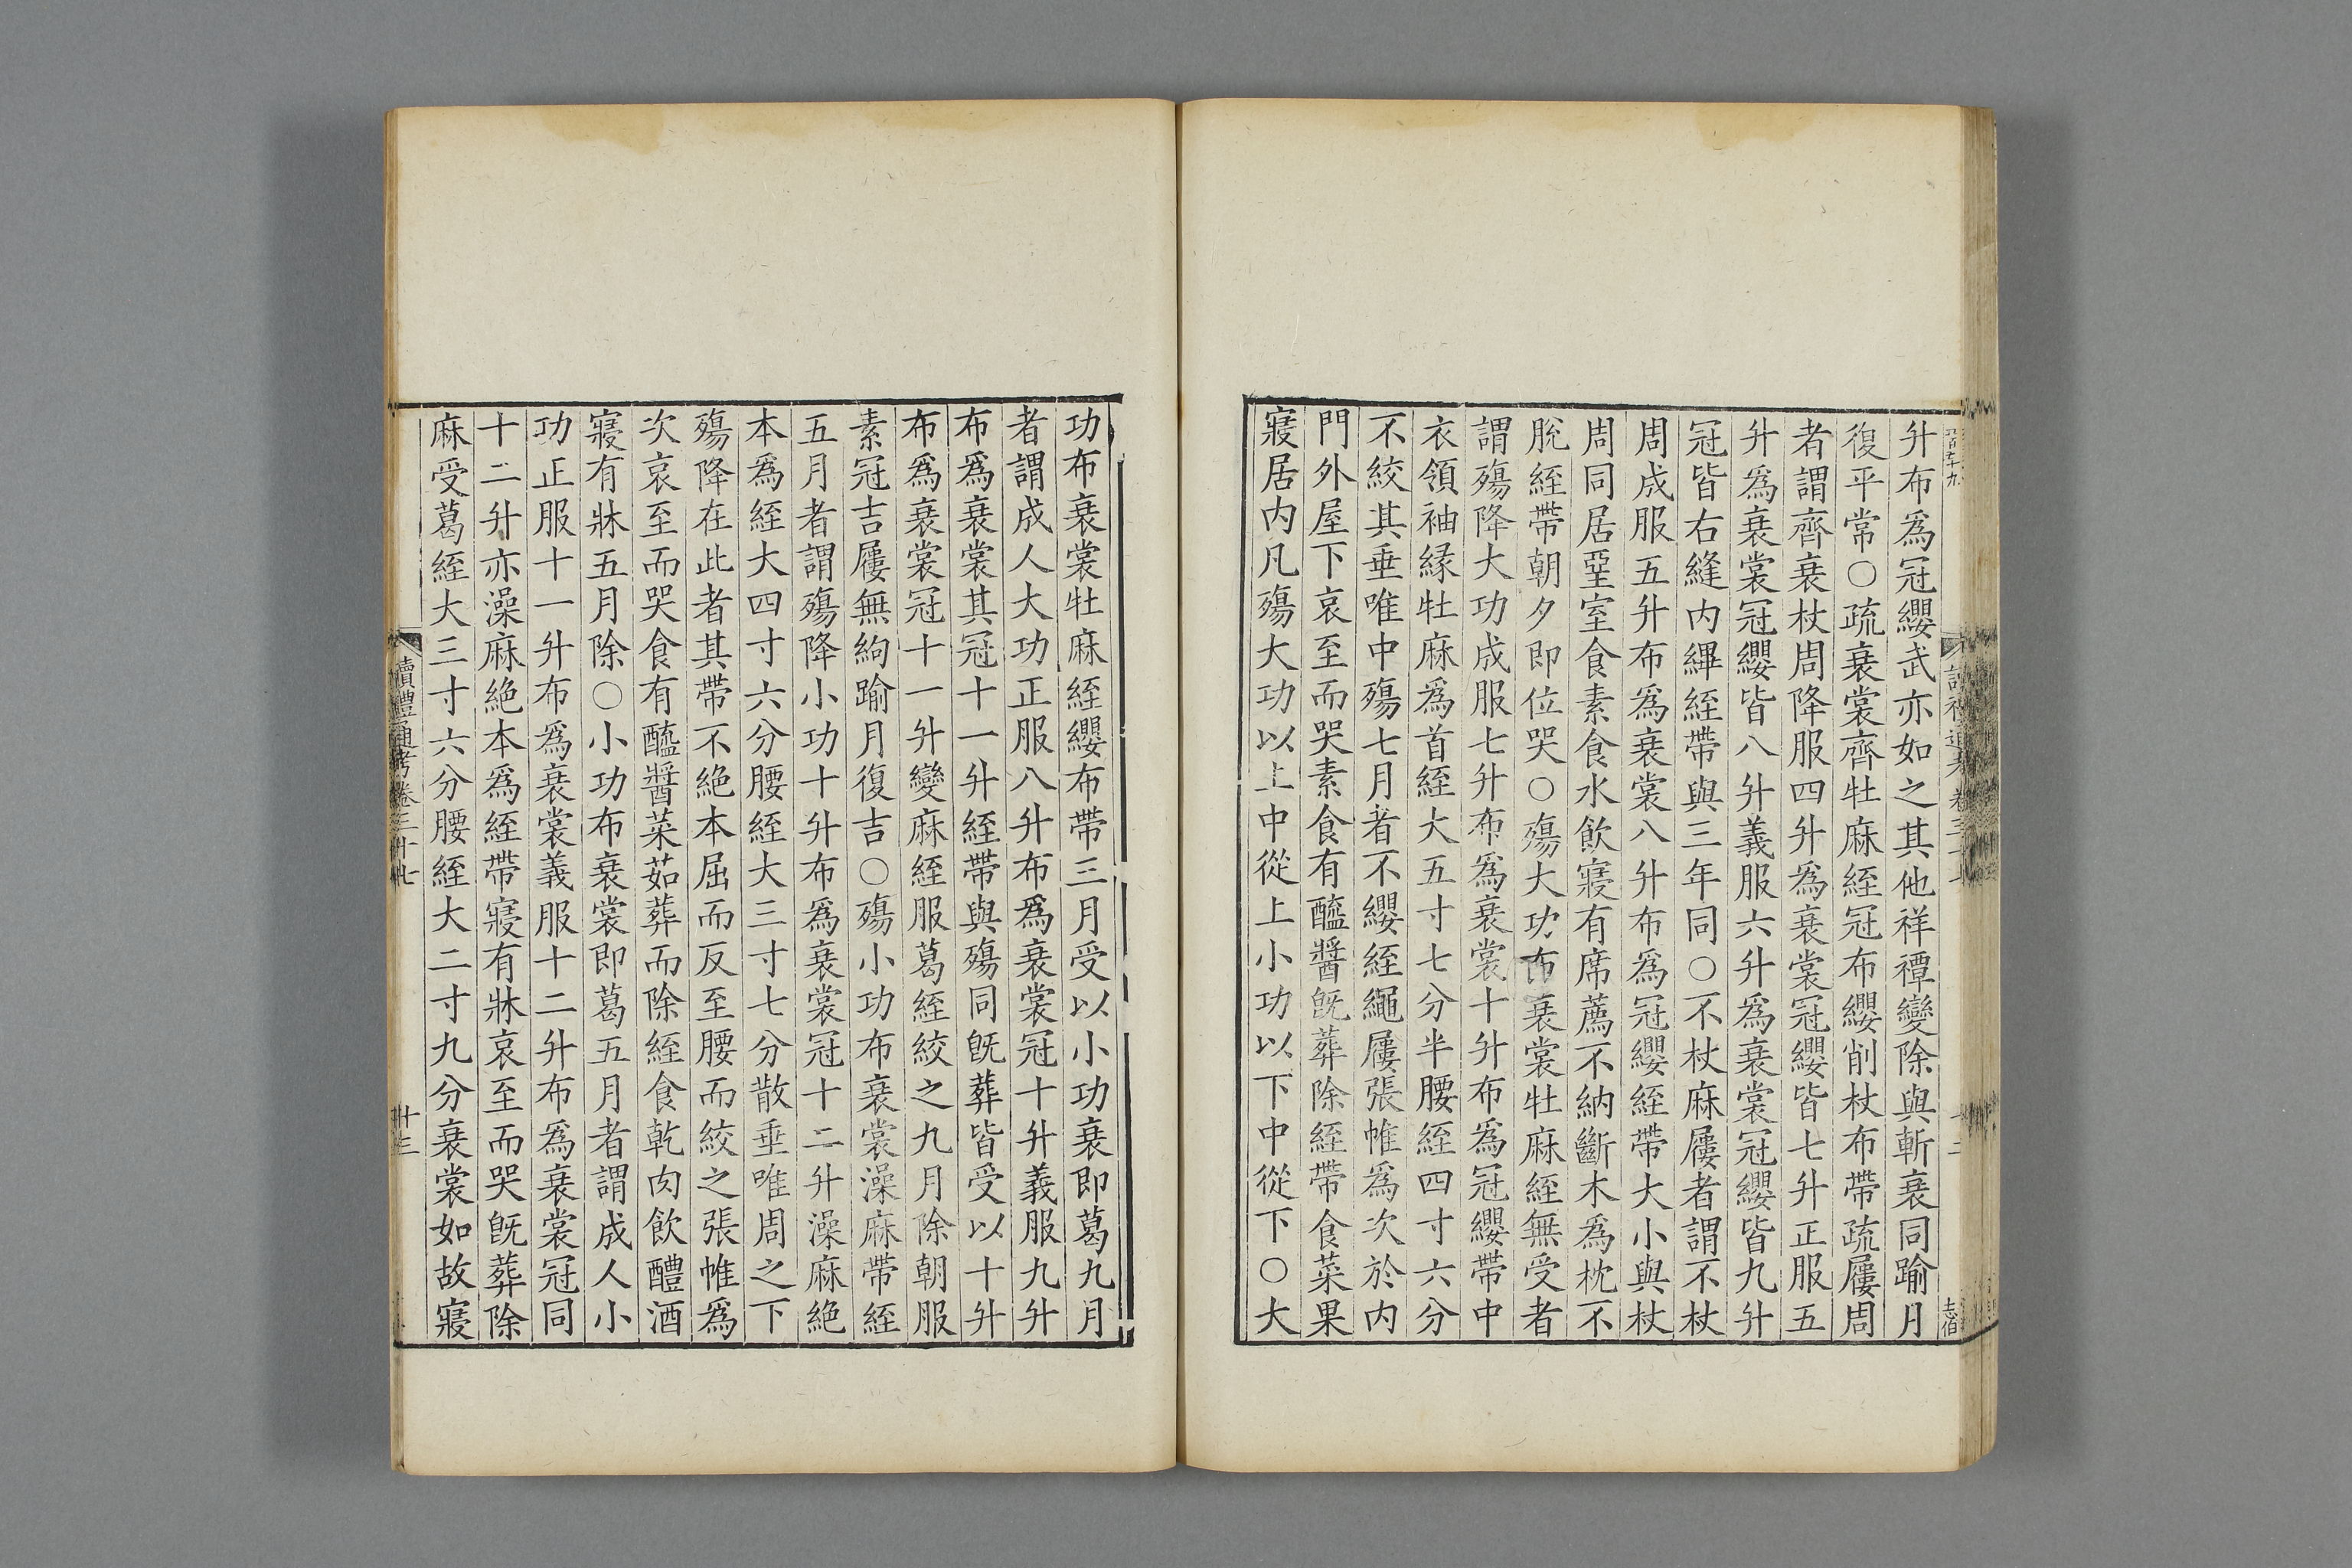 升布爲冠纓武亦如之其他祥禫變除與斬衰同踰月
復平常○疏衰裳齊牡麻絰冠布纓削杖布帶疏屨周
者謂齊衰杖周降服四升爲衰裳冠纓皆七升正服五
升爲衰裳冠纓皆八升義服六升爲衰裳冠纓皆九升
冠皆右縫内縪絰帶與三年同○不杖麻屨者謂不杖
周成服五升布爲衰裳八升布爲冠纓絰帶大小與杖
周同居堊室食素食水飲寢有席薦不納斷木爲枕不
脫絰帶朝夕即位哭○殤大功布衰裳牡麻絰無受者
謂殤降大功成服七升布爲衰裳十升布爲冠纓帶中
衣領袖緣牡麻爲首絰大五寸七分半腰絰四寸六分
不絞其垂唯中殤七月者不纓絰繩屨張帷爲次於内
門外屋下哀至而哭素食有醯醬旣葬除絰帶食菜果
寢居内凡殤大功以上中從上小功以下中從下○大
功布衰裳牡麻絰纓布帶三月受以小功衰即葛九月
者謂成人大功正服八升布爲衰裳冠十升義服九升
布爲衰裳其冠十一升絰帶與殤同旣葬皆受以十升
布爲衰裳冠十一升變麻絰服葛絰絞之九月除朝服
素冠吉屨無絇踰月復吉○殤小功布衰裳澡麻帶絰
五月者謂殤降小功十升布爲衰裳冠十二升澡麻絶
本爲絰大四寸六分腰絰大三寸七分散垂唯周之下
殤降在此者其帶不絶本屈而反至腰而絞之張帷爲
次哀至而哭食有醯醬菜茹葬而除絰食乾肉飲醴酒
寢有牀五月除○小功布衰裳即葛五月者謂成人小
功正服十一升布爲衰裳義服十二升布爲衰裳冠同
十二升亦澡麻絶本爲絰帶寢有牀哀至而哭旣葬除
麻受葛絰大三寸六分腰絰大二寸九分衰裳如故寢
讀禮通考卷三十七
十三